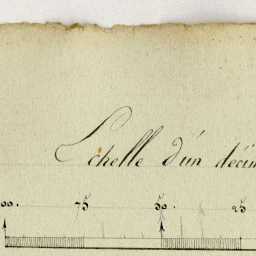 Echelle d'un décim
00. 75 50. 25